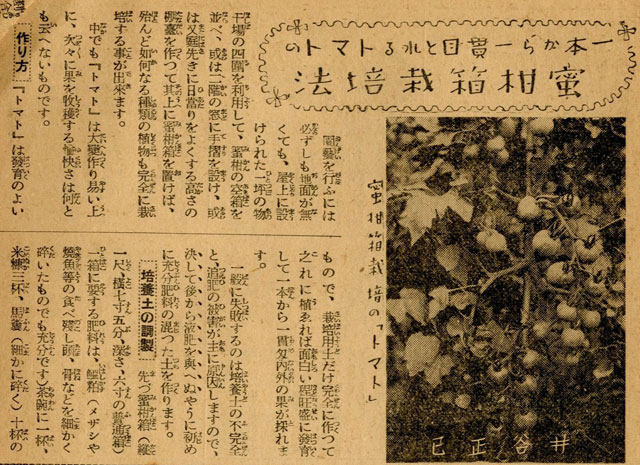 一本から一貫目とれるトマトの
蜜柑箱栽培法
井谷正已
蜜柑箱栽培の「トマト」
園藝を行ふには
必ずしも地面が無
くても、屋上に設
けられた一坪の物
干場の四圍を利用して、蜜柑の空箱を
並べ、或は二階の窓に手摺を設け、或
は又庭先きに日當りをよくする高さの
棚臺を作つて其上に蜜柑箱を置けば、
殆んど如何なる種類の植物も完全に栽
培する事が出來ます。
中でも『トマト』は大變作り易い上
に、次々に果を收穫する愉快さは何と
も云へないものです。
作り方 『トマト』は發育のよい
もので、栽培用土だけ完全に作つて
之れに植ゑれば面白い程旺盛に發育
して一本から一貫匁内外の果が採れま
す。
一般に失敗するのは培養土の不完全
と、追肥の被害が主に原因しますので、
決して後から液肥を與へぬやうに初め
に充分肥料の混つた土を作ります。
培養土の調製 先づ蜜柑箱(縱
一尺、橫七寸五分、深さ、六寸の普通箱)
一箱に要する肥料は、鰹粕(メザシや
燒魚等の食べ殘し頭、骨などを細かく
碎いたものでも充分です)茶碗に一杯、
米糠三杯、馬糞(細かに碎く)十杯の